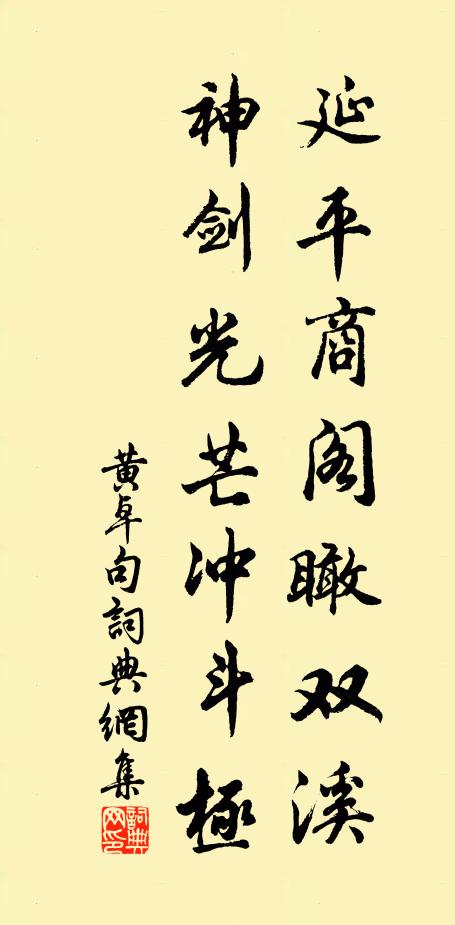 延平商阁瞰双溪
神剑光芒冲斗极
黄卓句詞典網集
詞典网印